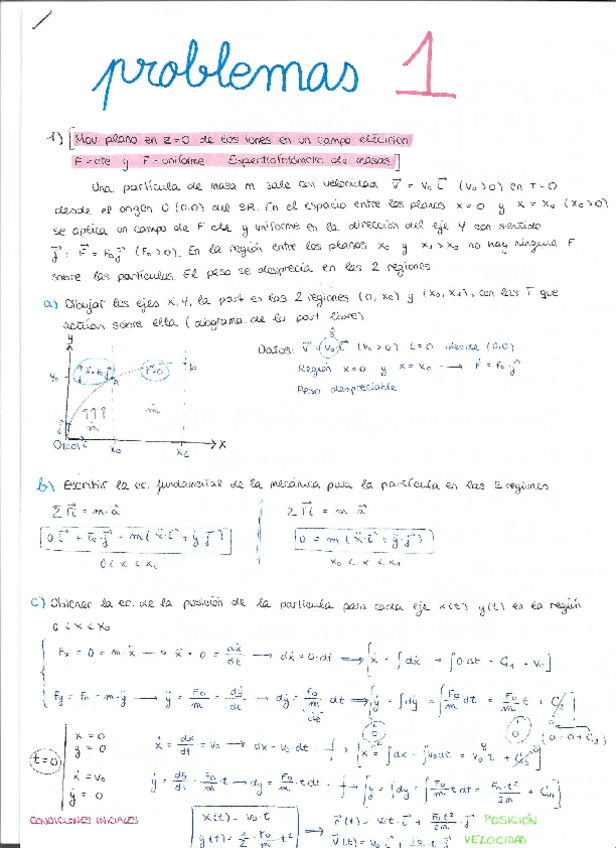 problemas 1
1) [Mov plano en z=0 de los iones en un campo eléctrico
F=cte y F-uniforme Espectrofotómetro de masas]
Una partícula de masa m sale con velocidad v⃗ = v₀ i⃗ (v₀>0) en t=0
desde el origen O(0,0) del SR. En el espacio entre los planos x=0 y x=x₀ (x₀>0)
se aplica un campo de F cte y uniforme en la dirección del eje Y con sentido
j⃗: F⃗ = F₀j⃗ (F₀>0). En la región entre los planos x₀ y x₁>x₀ no hay ninguna F
sobre las partículas. El peso se desprecia en las 2 regiones
a) Dibujar los ejes X, Y, la part en las 2 regiones (0, x₀) y (x₀, x₁), con las F que
actúan sobre ella (diagrama de la part libre)
Datos: v⃗ = v₀ i⃗ (v₀>0) t=0 desde (0,0)
Región x=0 y x=x₀ → F⃗ = F₀·j⃗
Peso despreciable
y
y₀
m
m
x₀
x
b) Escribir la ec. fundamental de la mecánica para la partícula en las 2 regiones
ΣF⃗i = m·a⃗
ΣF⃗i = m a⃗
0 i⃗ + F₀·j⃗ = m(ẍ·i⃗ + ÿ j⃗)
0 = m(ẍ·i⃗ + ÿ·j⃗)
0 < x < x₀
x₀ < x < x₁
c) Obtener la ec. de la posición de la partícula para cada eje x(t) y(t) en la región
0 < x < x₀
Fx = 0 = m·ẍ → ẍ = 0 = dẋ/dt → dẋ = 0·dt ⟹ [ẋ = ∫dẋ = ∫0·dt = C₁ = v₀]
Fy = F₀ = m·ÿ → ÿ = F₀/m = dẏ/dt → dẏ = F₀/m dt ⟹ [ẏ = ∫dẏ = ∫F₀/m dt = F₀/m t + C₂]
cte
(0 = 0 + C₂)
t=0
x = 0
y = 0
ẋ = v₀
ẏ = 0
ẋ = dx/dt = v₀ → dx = v₀·dt → [x = ∫dx = ∫v₀dt = v₀ t + C₃]
ẏ = dy/dt = F₀/m·t → dy = F₀/m t dt → [y = ∫dy = ∫F₀/m t dt = F₀·t²/2m + C₄]
CONDICIONES INICIALES
x(t) = v₀·t
y(t) = 1/2·F₀/m·t²
r⃗(t) = v₀t·i⃗ + F₀t²/2m·j⃗ POSICIÓN
v⃗(t) = v₀ i⃗ + F₀/m t j⃗ VELOCIDAD